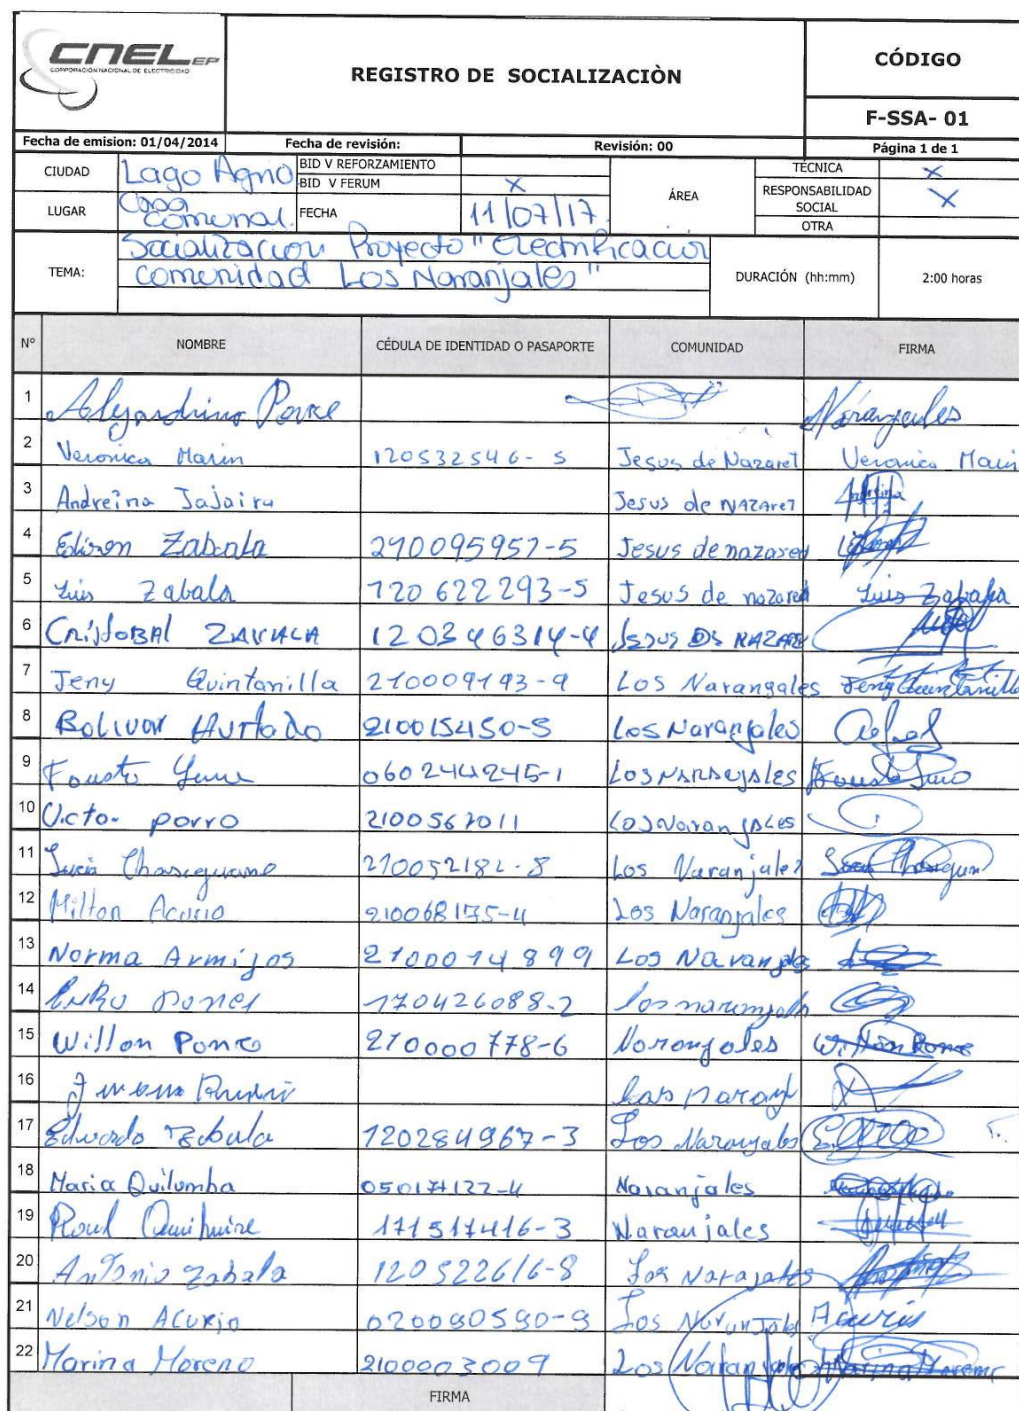 CNEL EP
CORPORACIÓN NACIONAL DE ELECTRICIDAD
REGISTRO DE SOCIALIZACIÒN
CÓDIGO
F-SSA- 01
Fecha de emision: 01/04/2014 Fecha de revisión: Revisión: 00 Página 1 de 1
CIUDAD Lago Agrio BID V REFORZAMIENTO ÁREA TÉCNICA X
BID V FERUM X RESPONSABILIDAD SOCIAL X
LUGAR Casa comunal. FECHA 11/07/17 OTRA
TEMA: Socializacion Proyecto "Electrificación
comunidad Los Naranjales" DURACIÓN (hh:mm) 2:00 horas
Nº NOMBRE CÉDULA DE IDENTIDAD O PASAPORTE COMUNIDAD FIRMA
1 Alejandrino Ponce Naranjales
2 Veronica Marin 120532546-5 Jesus de Nazaret Veronica Marin
3 Andreina Jajaira Jesus de NAZAreT
4 Edison Zabala 210095957-5 Jesus de nazared
5 Luis Zabala 120622293-5 Jesus de nazared Luis Zabala
6 CRISTOBAL ZAVALA 120346314-4 JESUS DE NAZARE
7 Jeny Quintanilla 210009193-9 Los Narangales Jeny Quintanilla
8 BOLIVAR HURTADO 210015450-5 Los Naranjales
9 Fausto 060244245-1 Los NARANJALES Fausto
10 Victor porro 2100567011 Los Naranjales
11 Chasiguano 210052182-8 Los Naranjales
12 Milton Acurio 210068175-4 Los Naranjales
13 Norma Armijos 2100014899 Los Naranjales
14 170426088-2 los naranjales
15 Willon Ponce 210000778-6 Noronjoles Willon Ponce
16
17 Eduardo Zabala 120284967-3 Los Naranjales
18 Maria Quilumba 050171122-4 Naranjales
19 Raul 171517416-3 Naranjales
20 Antonio Zabala 120522616-8 Los Narajales
21 Nelson Acurio 020090590-9 Los Naranjales Acurio
22 Marina Moreno 2100003009 Los Naranjales Marina Moreno
FIRMA